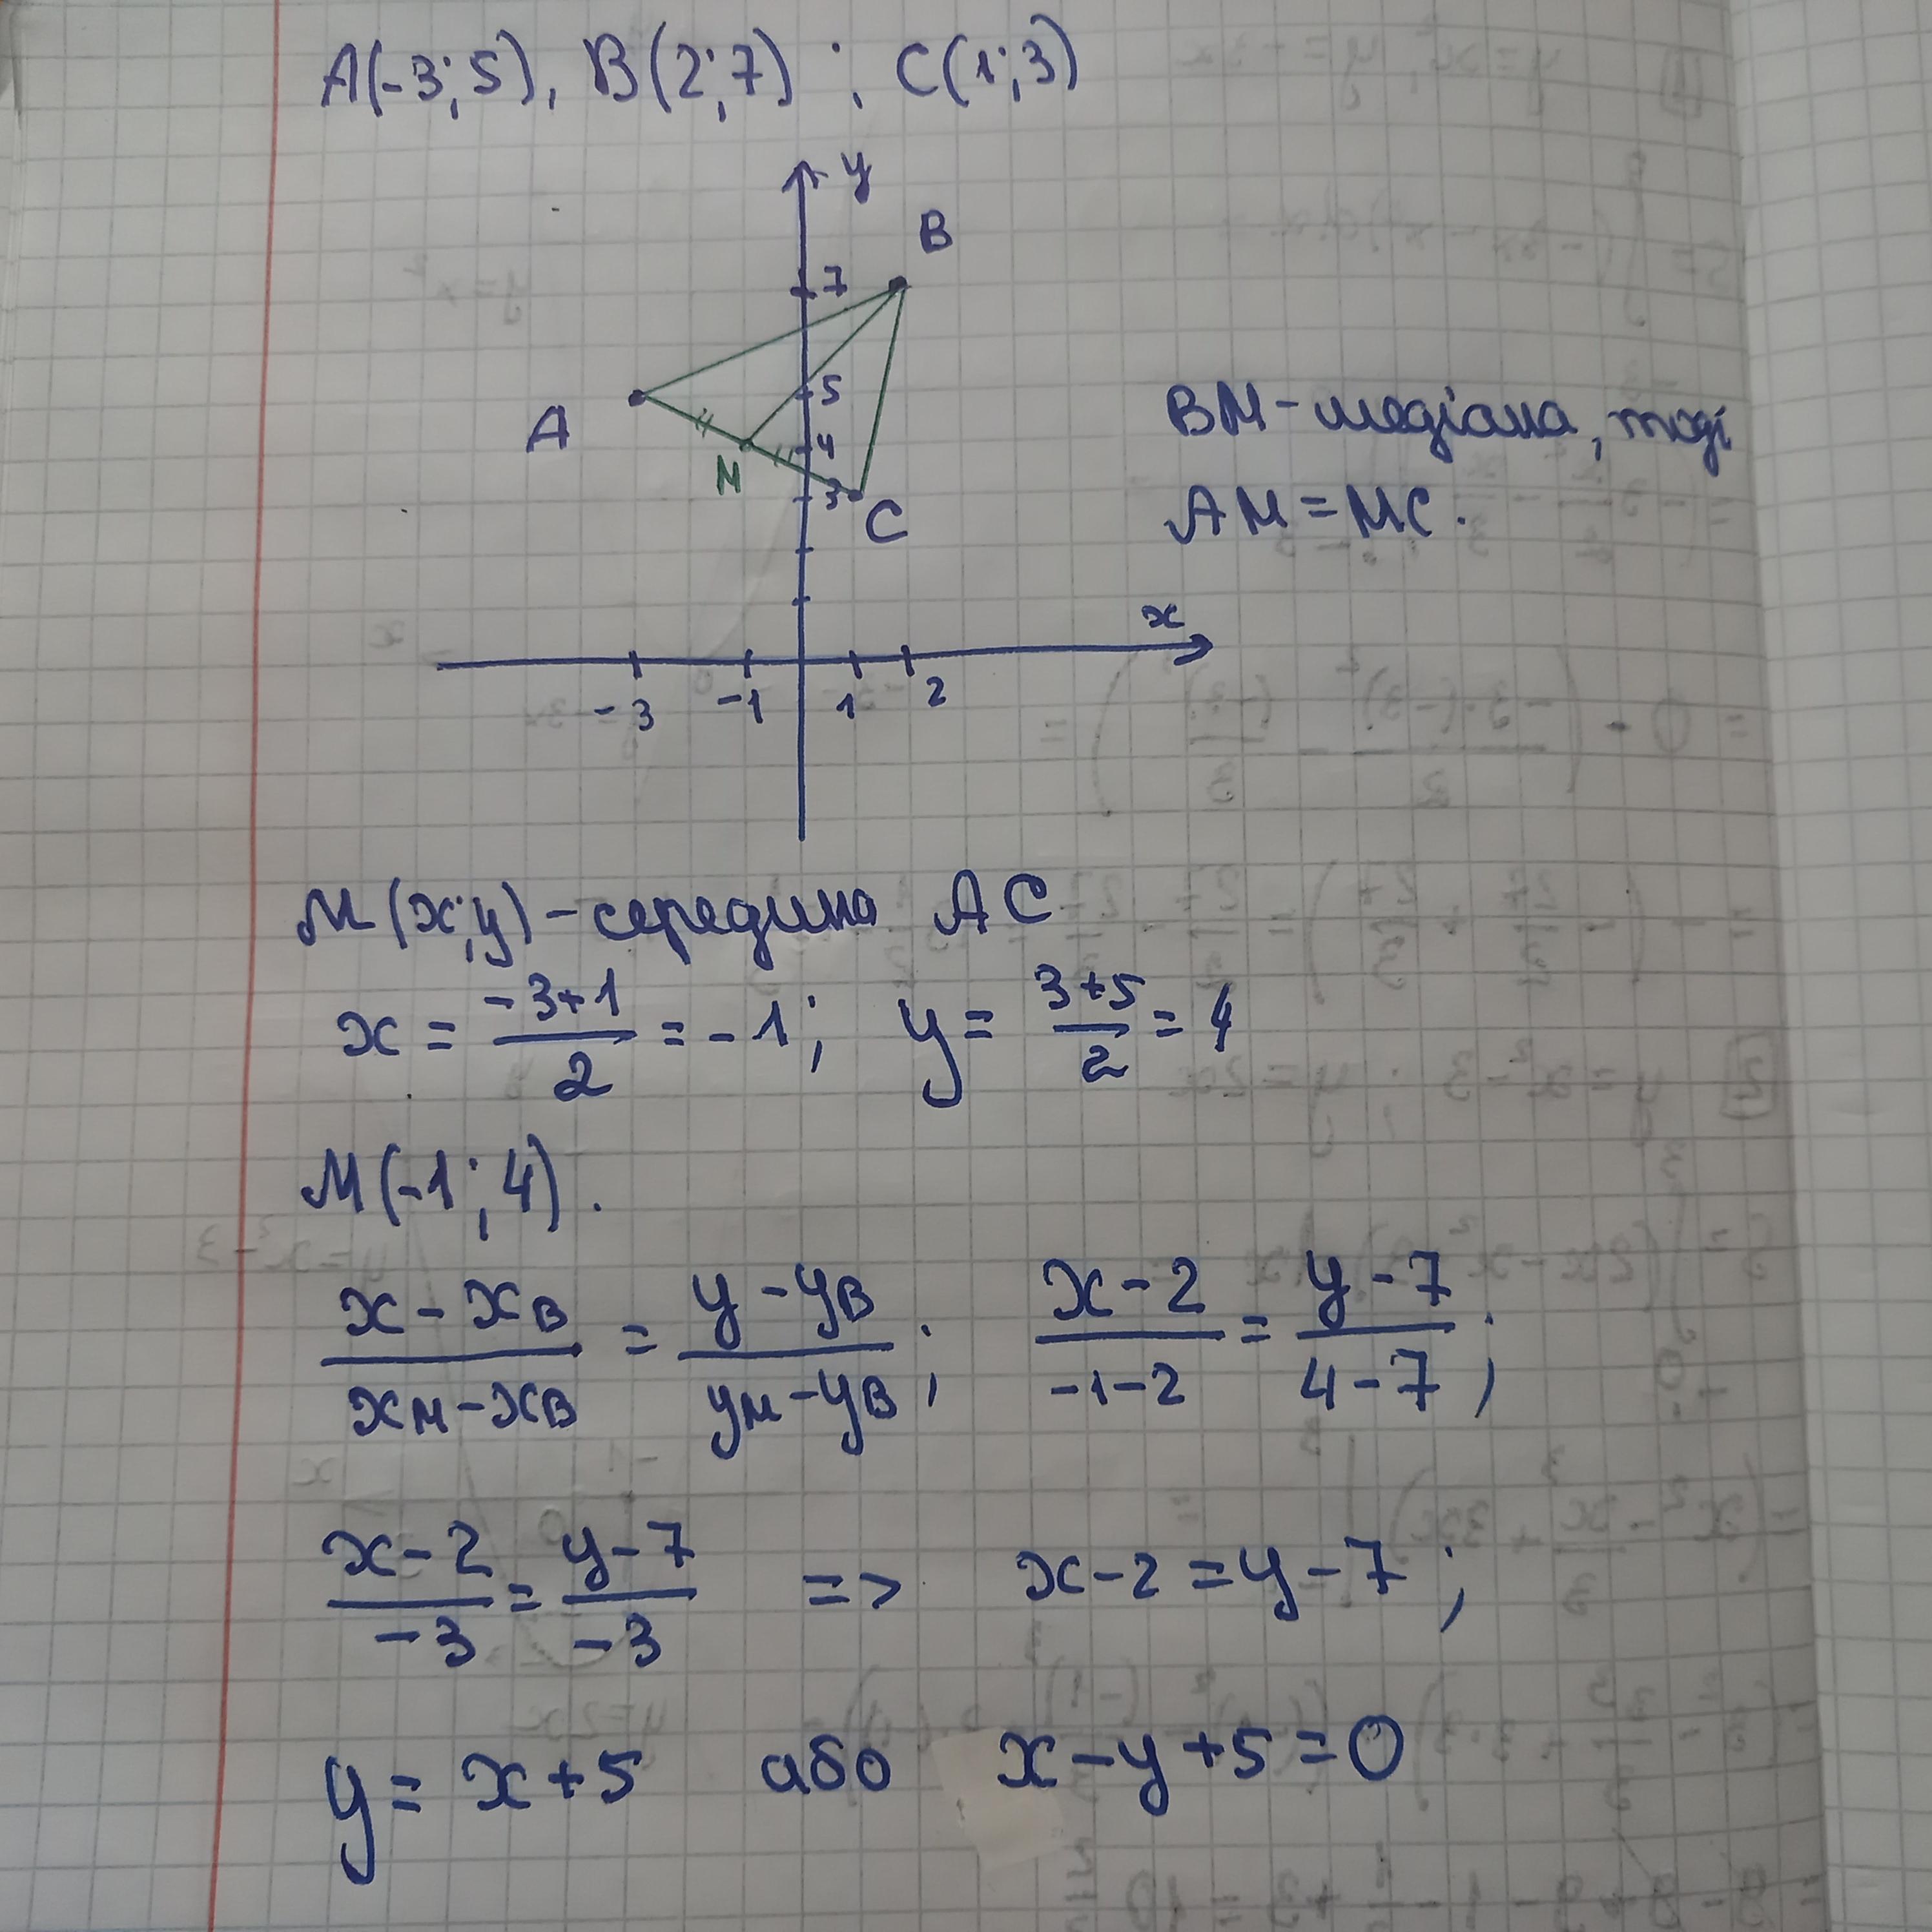 A(-3;5), B(2;7); C(1;3)
y
B
7
5
A
4
M
3
C
x
-3 -1 1 2
BM-медіана, тоді
AM=MC.
M(x;y)-середина AC
x = \frac{-3+1}{2} = -1; y = \frac{3+5}{2} = 4
M(-1;4).
\frac{x-x_B}{x_M-x_B} = \frac{y-y_B}{y_M-y_B}; \frac{x-2}{-1-2} = \frac{y-7}{4-7};
\frac{x-2}{-3} = \frac{y-7}{-3} => x-2=y-7;
y = x+5 або x-y+5=0